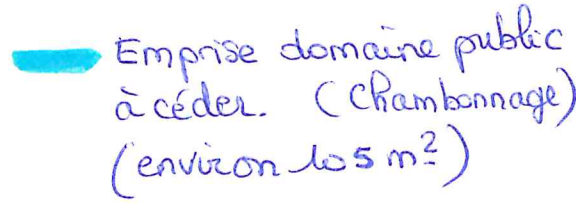 Emprise domaine public
à céder. (Chambonnage)
(environ 105 m²)